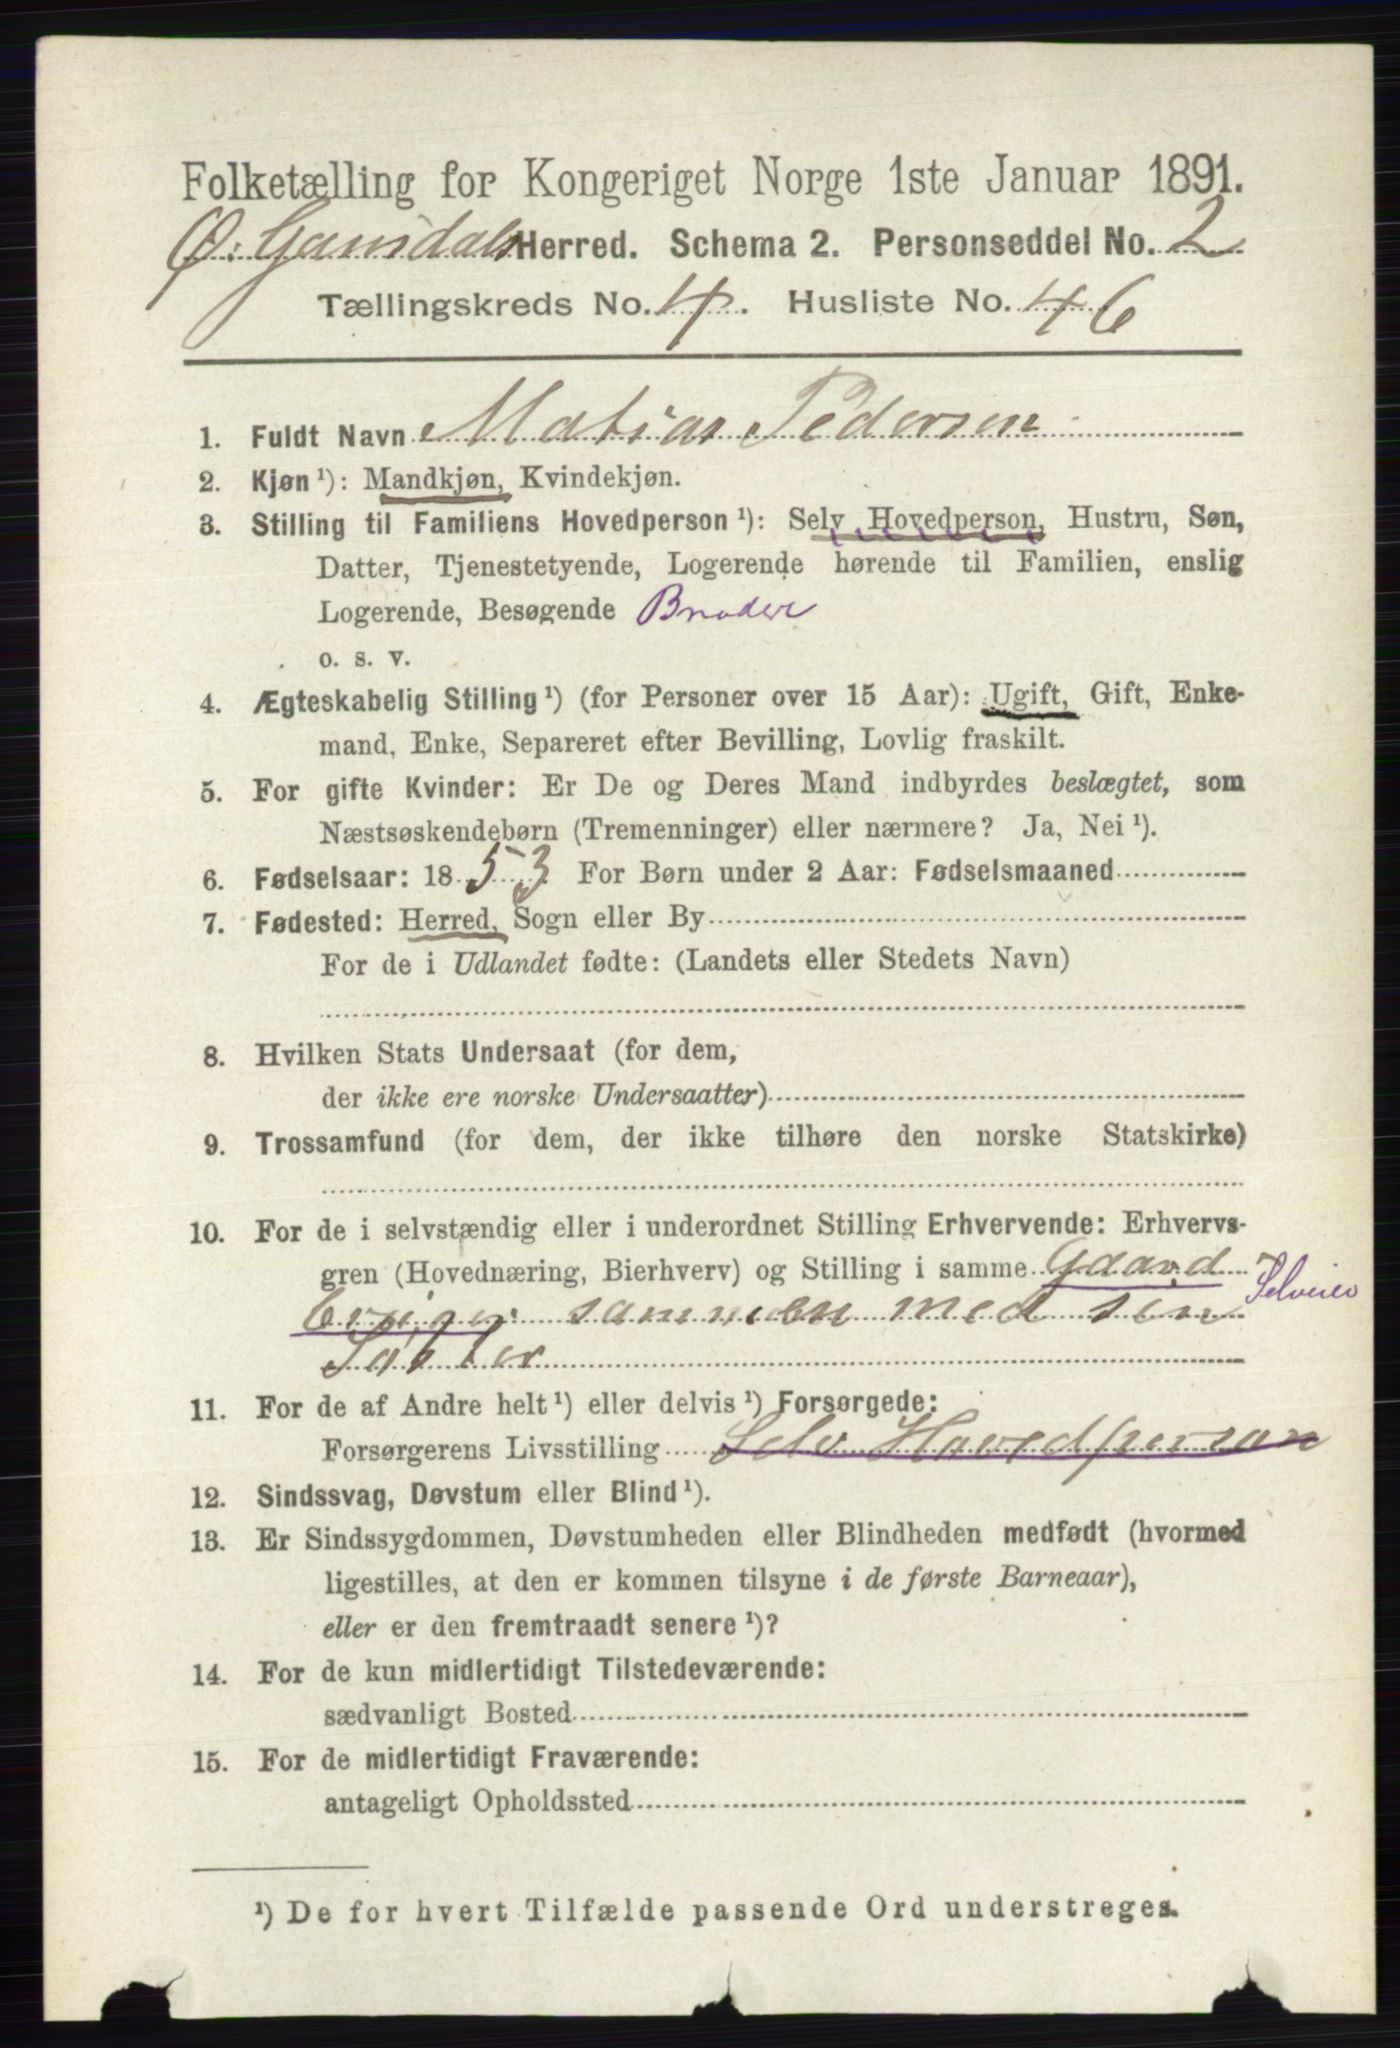 Folketælling for Kongeriget Norge 1ste Januar 1891.
Ø. Gausdals Herred. Schema 2. Personseddel No. 2
Tællingskreds No. 4. Husliste No. 46
1. Fuldt Navn Matias Pedersen
2. Kjøn ¹): Mandkjøn, Kvindekjøn.
3. Stilling til Familiens Hovedperson ¹): Selv Hovedperson, Hustru, Søn,
Datter, Tjenestetyende, Logerende hørende til Familien, enslig
Logerende, Besøgende Broder
o. s. v.
4. Ægteskabelig Stilling ¹) (for Personer over 15 Aar): Ugift, Gift, Enke-
mand, Enke, Separeret efter Bevilling, Lovlig fraskilt.
5. For gifte Kvinder: Er De og Deres Mand indbyrdes beslægtet, som
Næstsøskendebørn (Tremenninger) eller nærmere? Ja, Nei ¹).
6. Fødselsaar: 1853 For Børn under 2 Aar: Fødselsmaaned
7. Fødested: Herred, Sogn eller By
For de i Udlandet fødte: (Landets eller Stedets Navn)
8. Hvilken Stats Undersaat (for dem,
der ikke ere norske Undersaatter)
9. Trossamfund (for dem, der ikke tilhøre den norske Statskirke)
10. For de i selvstændig eller i underordnet Stilling Erhvervende: Erhvervs-
gren (Hovednæring, Bierhverv) og Stilling i samme Gaard Selveier
sammen med sin
11. For de af Andre helt ¹) eller delvis ¹) Forsørgede:
Forsørgerens Livsstilling Selv Hovedperson
12. Sindssvag, Døvstum eller Blind ¹).
13. Er Sindssygdommen, Døvstumheden eller Blindheden medfødt (hvormed
ligestilles, at den er kommen tilsyne i de første Barneaar),
eller er den fremtraadt senere ¹)?
14. For de kun midlertidigt Tilstedeværende:
sædvanligt Bosted
15. For de midlertidigt Fraværende:
antageligt Opholdssted
¹) De for hvert Tilfælde passende Ord understreges.